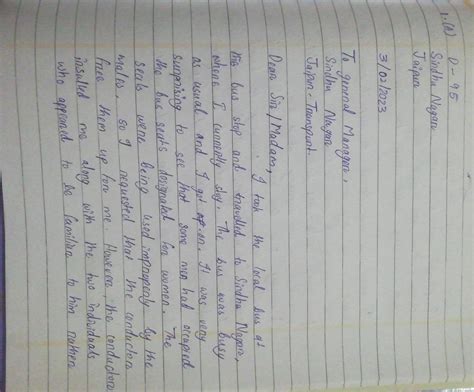 1.(A)
D-95
Sindhu Nagar
Jaipur
3/02/2023
To general Manager,
Sindhu Nagar
Jaipur-Transport.
Dear Sir/Madam,
I took the local bus at
this bus stop and travelled to Sindhu Nagar,
where I currently stay. The bus was busy
as usual and I got on. It was very
surprising to see that some men had occupied
the bus seats designated for women. The
seats were being used improperly by the
males, so I requested that the conductor
free them up for me. However, the conductor
insulted me along with the two individuals
who appeared to be familiar to him rather